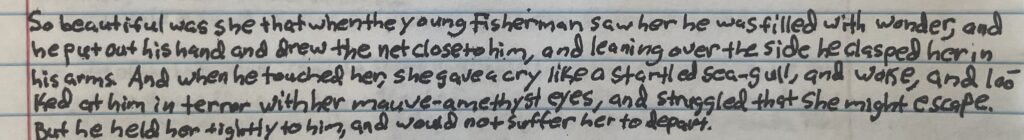 So beautiful was she that when the young Fisherman saw her he was filled with wonder, and
he put out his hand and drew the net close to him, and leaning over the side he clasped her in
his arms. And when he touched her, she gave a cry like a startled sea-gull, and woke, and loo
ked at him in terror with her mauve-amethyst eyes, and struggled that she might escape.
But he held her tightly to him, and would not suffer her to depart.